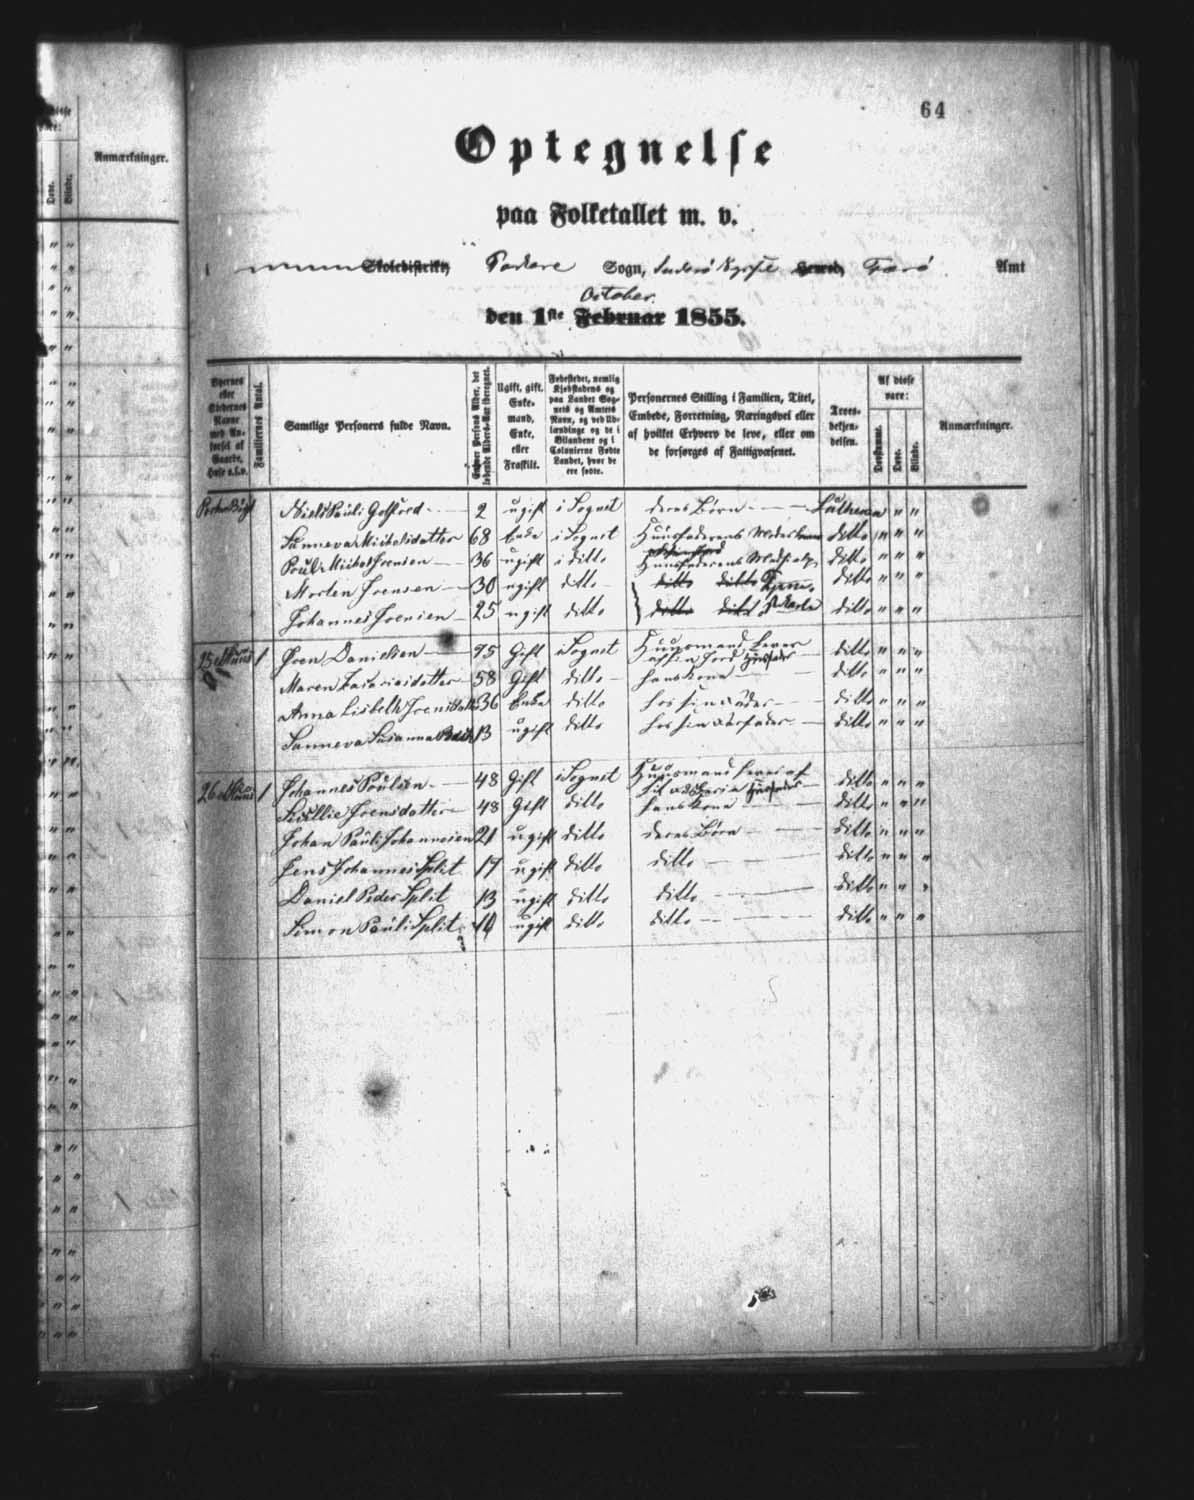 64
Optegnelse
paa Folketallet m. v.
Skoledistrikt, Porkere Sogn, Suderö Syssel Herred, Færö Amt
October
den 1ste Februar 1855.
Byernes eller Stedernes Navne med Antal af Gaarde, Huse o.s.v.
Familiernes Antal.
Samtlige Personers fulde Navn.
Enhver Persons Alder, det løbende Alders-Aar iberegnet.
Ugift, gift, Enkemand, Enke, eller Fraskilt.
Fødestedet, nemlig Kjøbstadens og paa Landet Sognets og Amtets Navn, og ved Udlændinge og de i Bilandene og i Colonierne Fødte Landet, hvor de ere fødte.
Personernes Stilling i Familien, Titel, Embede, Forretning, Næringsvei eller af hvilket Erhverv de leve, eller om de forsørges af Fattigvæsenet.
Troesbekjendelsen.
Af disse vare:
Døvstumme.
Døve.
Blinde.
Anmærkninger.
Niels Pauli 2 ugift i Sognet deres Børn Lutheran " "
Sanneva Michelsdatter 68 Enke i Sognet Huusfaderens Moder ditto " " "
Poul Michel Joensen 36 ugift i ditto Huusfaderens ditto " " "
Morten Joensen 30 ugift ditto ditto ditto ditto " " "
Johannes Joensen 25 ugift ditto ditto ditto ditto " " "
25 Huus 1 Joen Danielsen 75 Gift i Sognet Huusmand Lever af sin Jord Huusfader ditto " " "
Maren Zachariasdatter 58 Gift ditto hans Kone ditto " " "
Anna Lisbeth Joensdatter 36 Enke ditto hos sin Fader ditto " " "
Sanneva Susanna 13 ugift ditto hos sin ditto " " "
26 Huus 1 Johannes Poulsen 48 Gift i Sognet Huusmand lever af Huusfader ditto " " "
Joensdatter 48 Gift ditto hans Kone ditto " " "
Johan Pauli Johannesen 21 ugift ditto deres Børn ditto " " "
Jens Johannes Split 17 ugift ditto ditto ditto " " "
Daniel Peder Split 13 ugift ditto ditto ditto " " "
Simon Pauli Split ugift ditto ditto ditto " " "
Anmærkninger.
Døve.
Blinde.